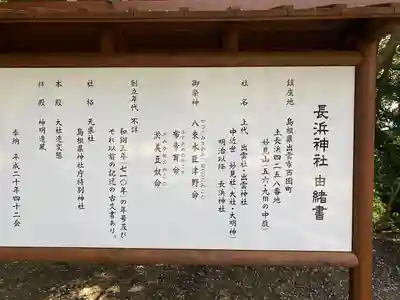 長浜神社 由緒書
鎮座地 島根県出雲市西園町
上長浜四二五八番地
妙見山(五六・九mの中腹)
社名 上代 出雲社・出雲神社
中近世 妙見社(大社・大明神)
明治以降 長浜神社
御祭神 八束水臣津野命
布帝耳命
淤美豆奴命
創立年代 不詳
和銅三年(七一〇年)の年号及び
それ以前の記述の古文書あり。
社格 元県社
島根県神社庁特別神社
本殿 大社造変態
拝殿 神明造風
奉納 平成二十年四十二会